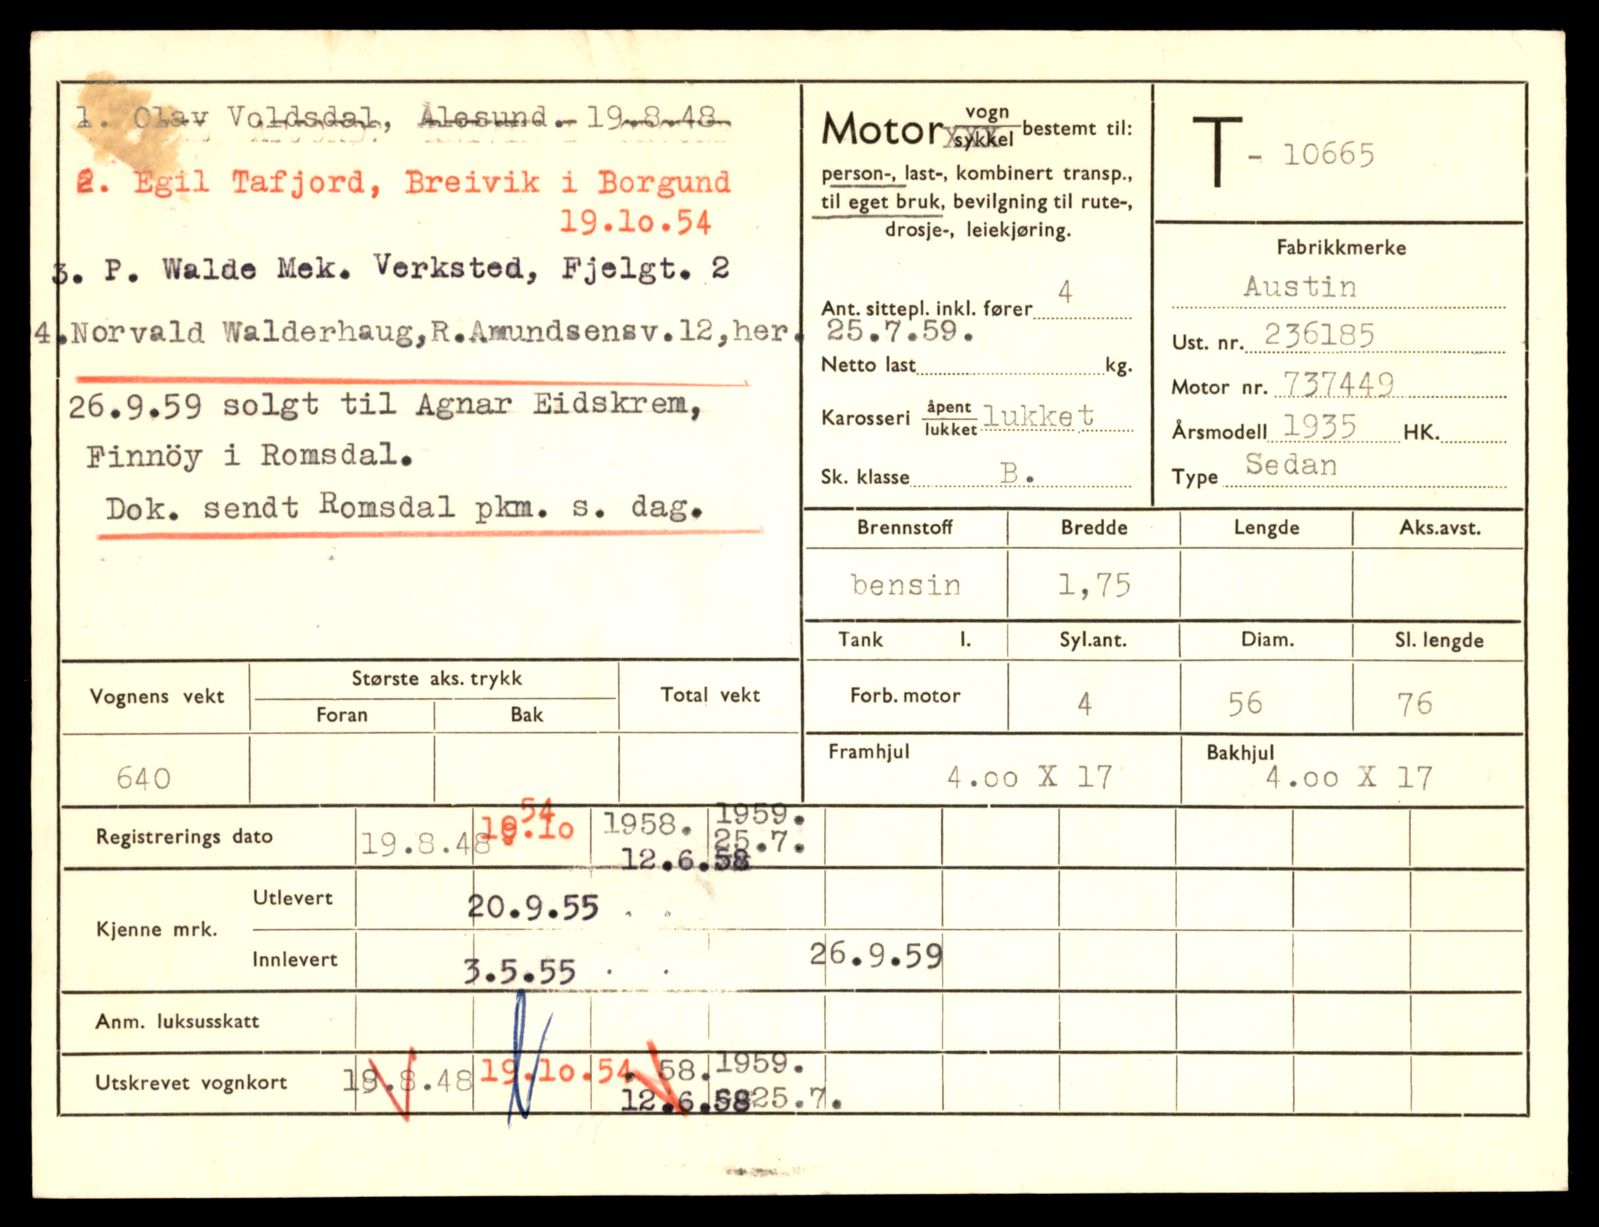 1. Olav Voldsdal, Ålesund.- 19-8-48-
2. Egil Tafjord, Breivik i Borgund
19.1o.54
3. P. Walde Mek. Verksted, Fjelgt. 2
4.Norvald Walderhaug,R.Amundsensv.12,her. 25.7.59.
26.9.59 solgt til Agnar Eidskrem,
Finnöy i Romsdal.
Dok. sendt Romsdal pkm. s. dag.
Motor vogn
sykkel bestemt til:
person-, last-, kombinert transp.,
til eget bruk, bevilgning til rute-,
drosje-, leiekjøring.
Ant. sittepl. inkl. fører 4
Netto last kg.
Karosseri åpent
lukket lukket
Sk. klasse B.
T - 10665
Fabrikkmerke
Austin
Ust. nr. 236185
Motor nr. 737449
Årsmodell 1935 HK.
Type Sedan
Brennstoff Bredde Lengde Aks.avst.
bensin 1,75
Tank l. Syl.ant. Diam. Sl. lengde
Forb. motor 4 56 76
Framhjul Bakhjul
4.oo X 17 4.oo X 17
Vognens vekt Største aks. trykk Total vekt
Foran Bak
640
Registrerings dato 19.8.48 19.1o 54 1958. 12.6.58 1959. 25.7.
Kjenne mrk. Utlevert 20.9.55
Innlevert 3.5.55 26.9.59
Anm. luksusskatt
Utskrevet vognkort 19.8.48 19.1o.54. 58. 12.6.58 1959. 25.7.